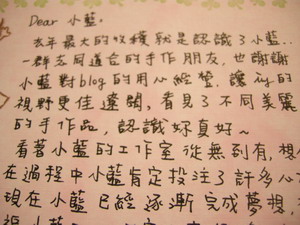 Dear 小藍.
去年最大的收穫就是認識了小藍..
一群志同道合的手作朋友, 也謝謝
小藍對blog的用心經營. 讓 ivy的
視野更佳遼闊, 看見了不同美麗
的手作品, 認識妳真好~
看著小藍的工作室從無到有, 想
在過程中小藍肯定投注了許多心
現在小藍已經逐漸完成夢想,
小藍